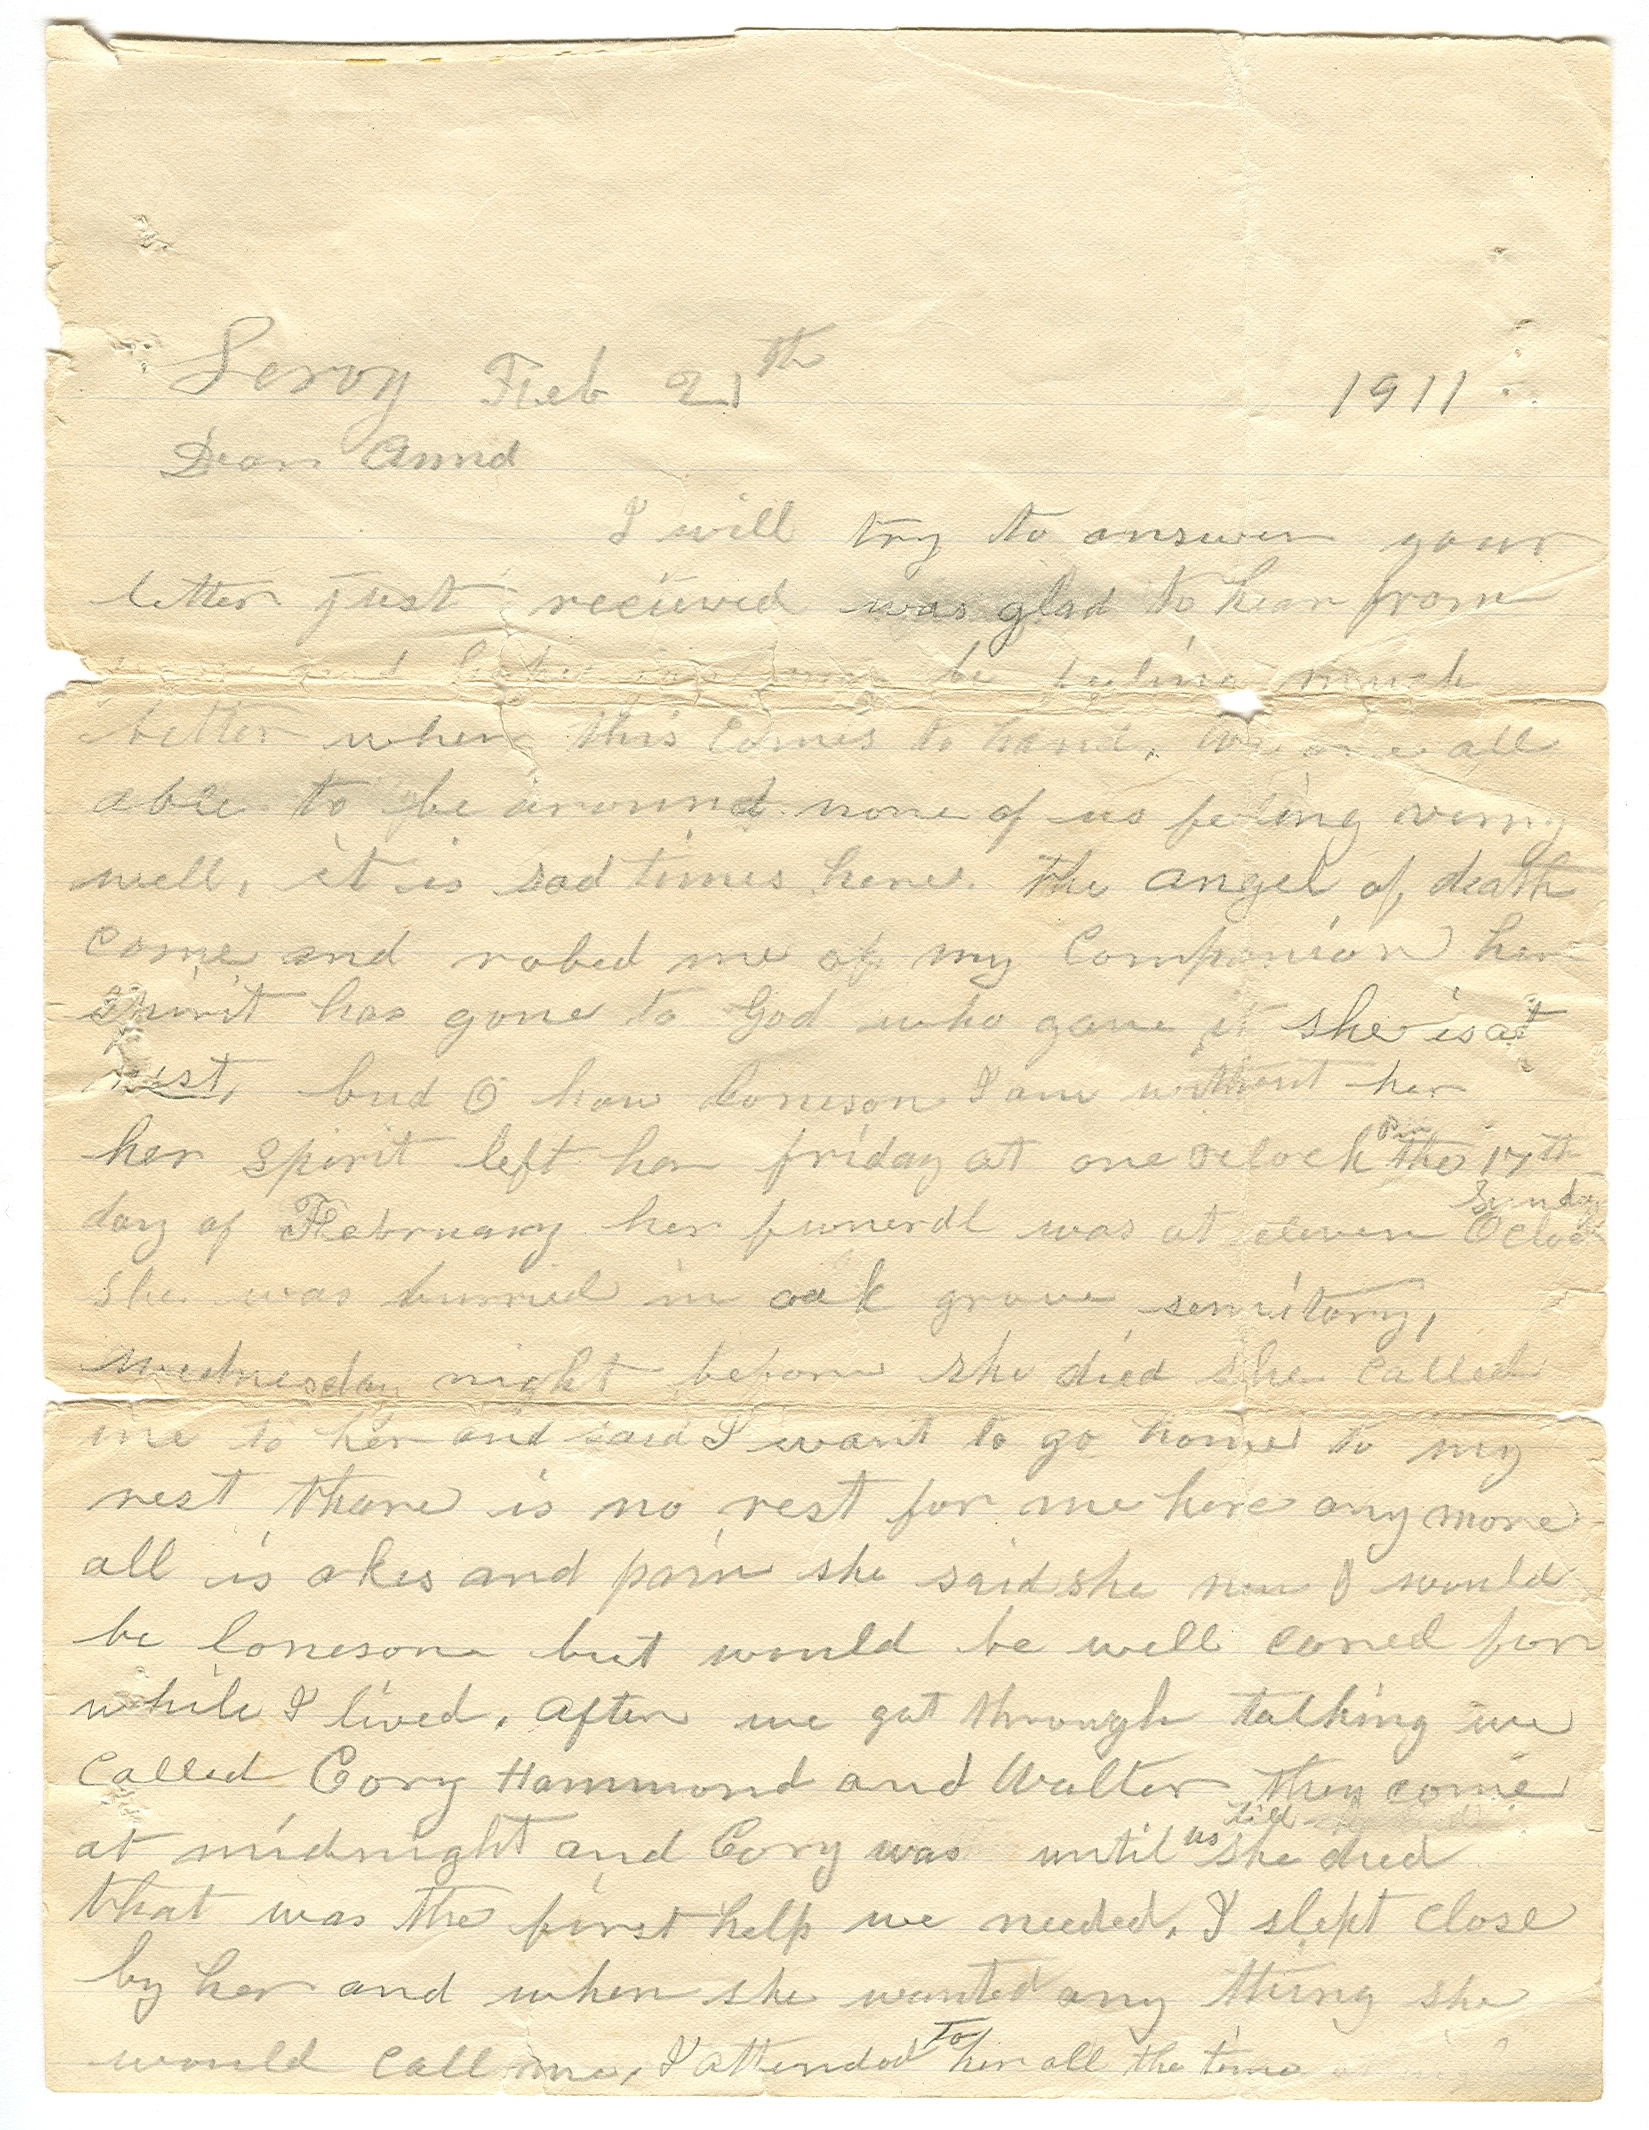 Leroy Feb 21th 1911
Dear Annd
I will try to answer your
letter just recieived was glad to hear from
be feeling much
better when this comes to hand. We are all
able to be around none of us feling verry
well, it is sad times here. The angel of death
come and robed me of my companion her
spirit has gone to God who gave it she is at
rest, bud O how lonesom I am without her
her spirit left her friday at one oclock Pm the 17th
day of February her funerdl was at eleven Oclock Sunday
she was burried in oak grove semitary,
wednesday night before she died she called
me to her and said I want to go home to my
rest thare is no rest for me here any more
all is akes and pain she said she new I would
be lonesome but would be well cared for
while I lived. After we got through talking we
called Cory Hammond and Walter they come
at midnight and Cory was until us till she died
that was the first help we needed. I slept close
by her and when she wanted any thing she
would call me, I attended To her all the time